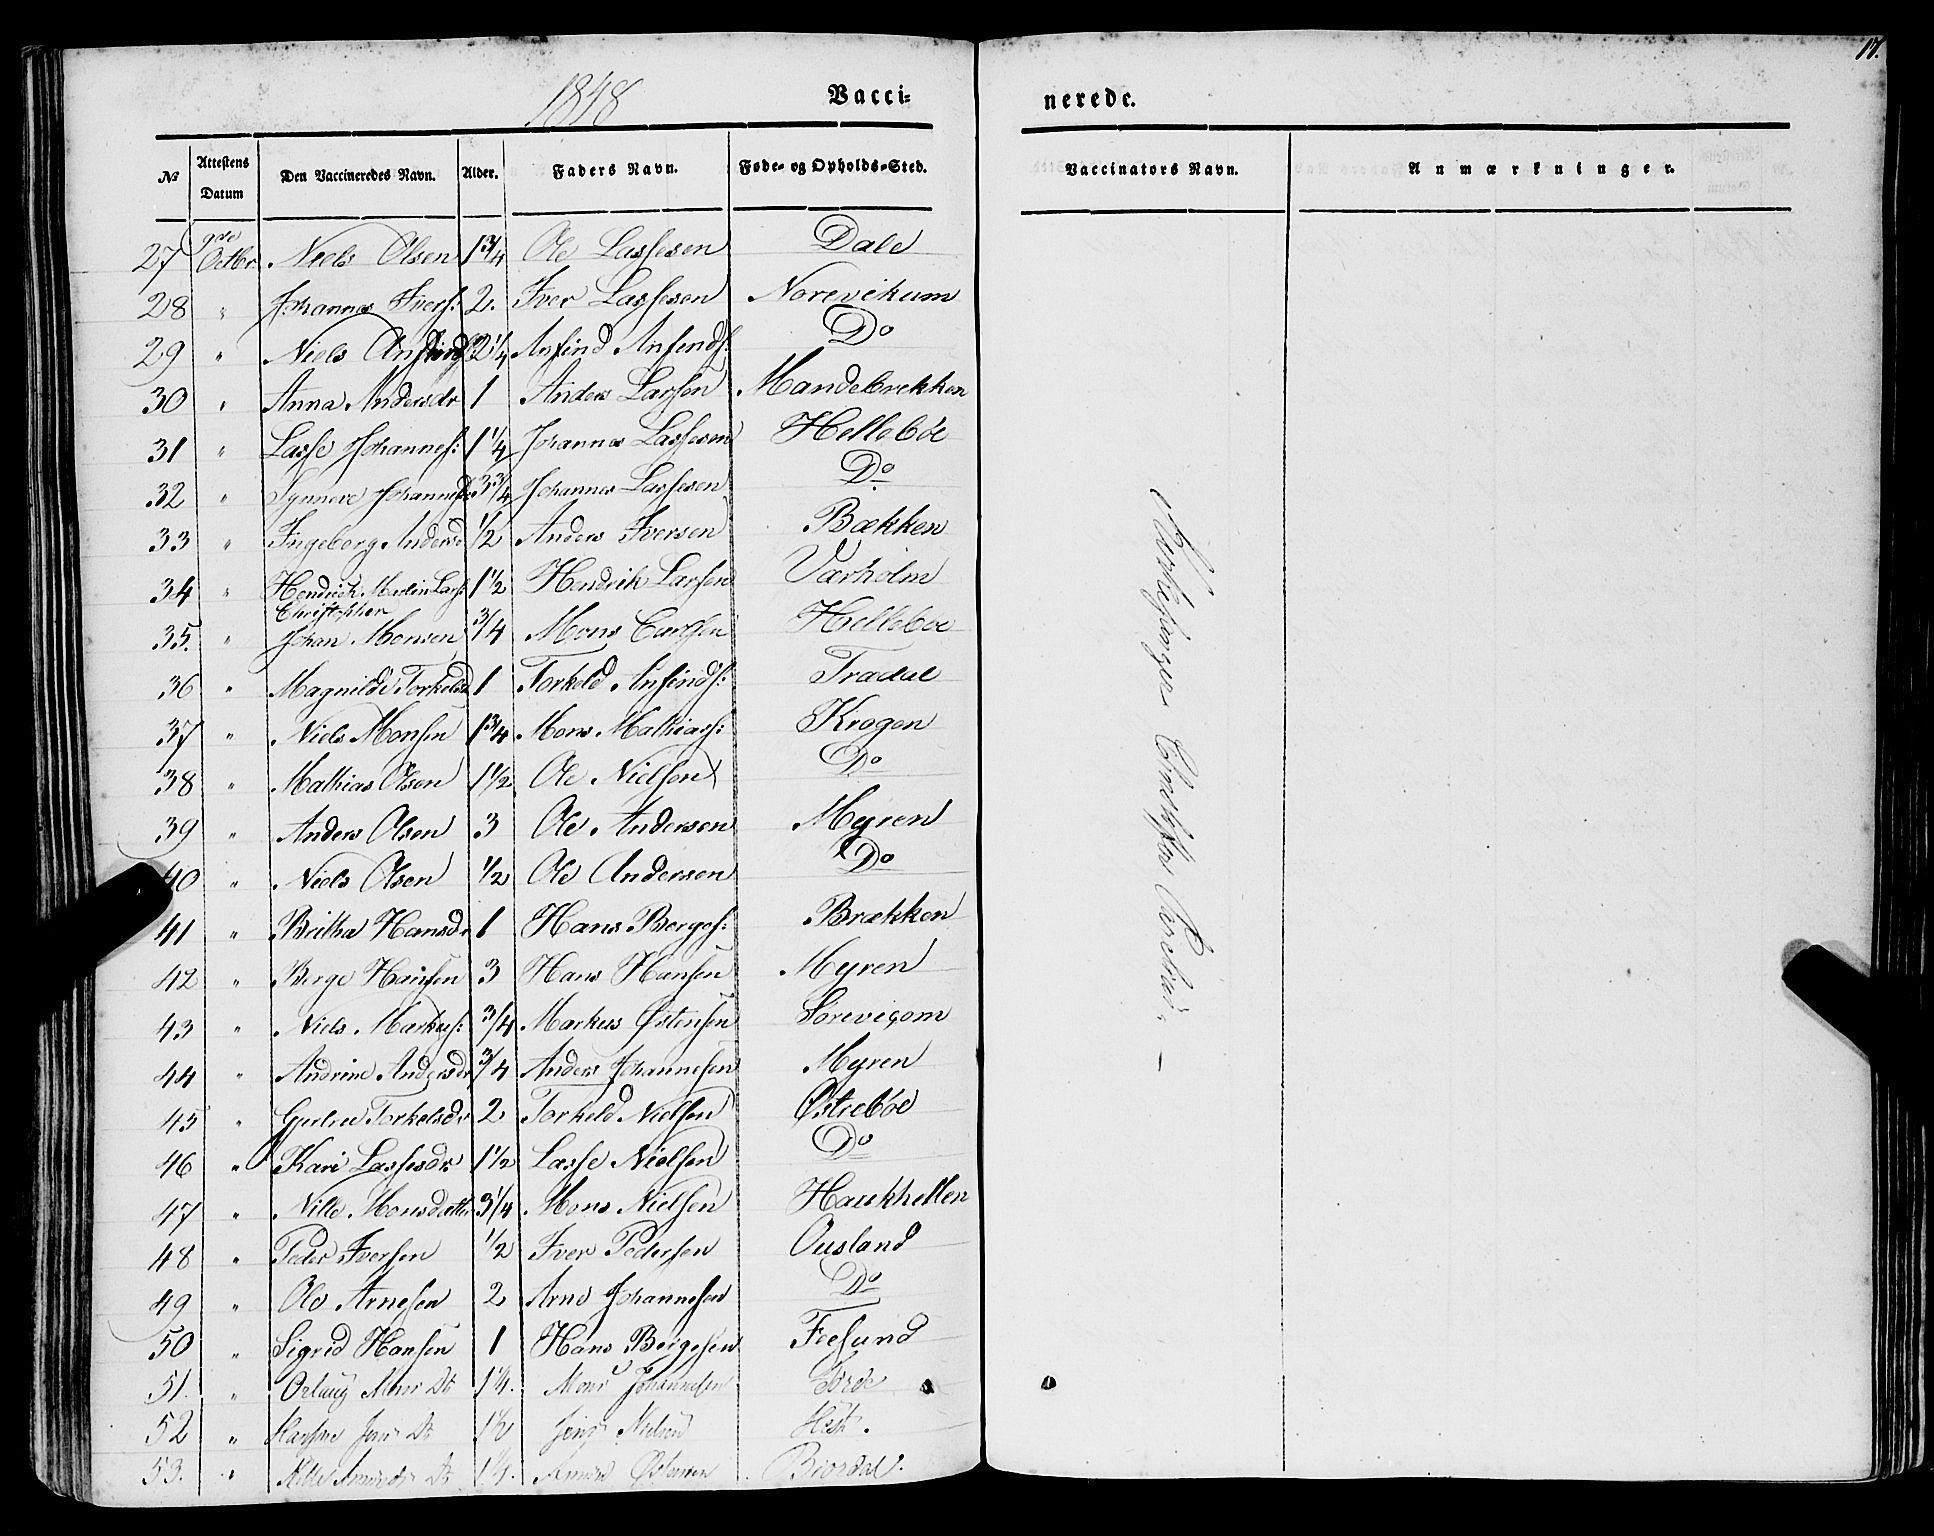 17.
1848 Vacci= neredc.
No Attestens Datum Den Vaccineredes Navn. Alder. Faders Navn. Føde- og Opholds=Sted. Vaccinators Navn. Anmærkninger.
27 9de Octbr. Niels Olsen 1 3/4 Ole Lassesen Dale
28 " Johannes Ivers: 2. Iver Lassesen Norevikum
29 " Niels Anfinds 2 1/4 Anfind Anfinds: Do
30 " Anna Andersdr 1 Anders Larsen Mandebrekken
31 " Lasse Johannes: 1 1/4 Johannes Lassesen Helleböe
32 " Synneve 3 3/4 Johannes Lassesen Do
33 " Ingeborg Andersd 1/2 Anders Iversen Bækken
34 " Hendrick Martin Lars: 1 1/2 Hendrik Larsen Værholm
35. " Christopher Johan Monsen 3/4 Mons Helleböe
36 " Magnilde Torkelsd 1 Torkeld Anfinds: Trædal
37 " Niels Monsen 1 3/4 Mons Mathias: Krogen
38 " Mathias Olsen 1 1/2 Ole Nielsen Do
39 " Anders Olsen 3 Ole Andersen Myren
40 " Niels Olsen 1/2 Ole Andersen Do
41 " Britha Hansdr 1 Hans Berges: Brækken
42 " Berge Hansen 3 Hans Hansen Myren
43 " Niels Markus: 3/4 Markus Østensen Sørevigom
44 " Andrine Andersdr 3/4 Anders Johannesen Myren
45 " Torkelsdr 2 Torkeld Nielsen Østreböe
46 " Kari Lassesdr 1 1/2 Lasse Nielsen Do
47 " Nille Monsdatter 3 1/4 Mons Nielsen Haukhellen
48 " Peder Iversen 1/2 Iver Pedersen Ousland
49 " Ole Arnesen 2 Arne Johannesen Do
50 " Sigrid Hansen 1 Hans Bergesen
51. " Mons Dr 1 1/4. Mons Johannesen
52 " Jens Dr 1 1/2 Jens Nielsen
53. " Dr 1 1/4. Østensen Biordal.
Kirkesanger Christopher